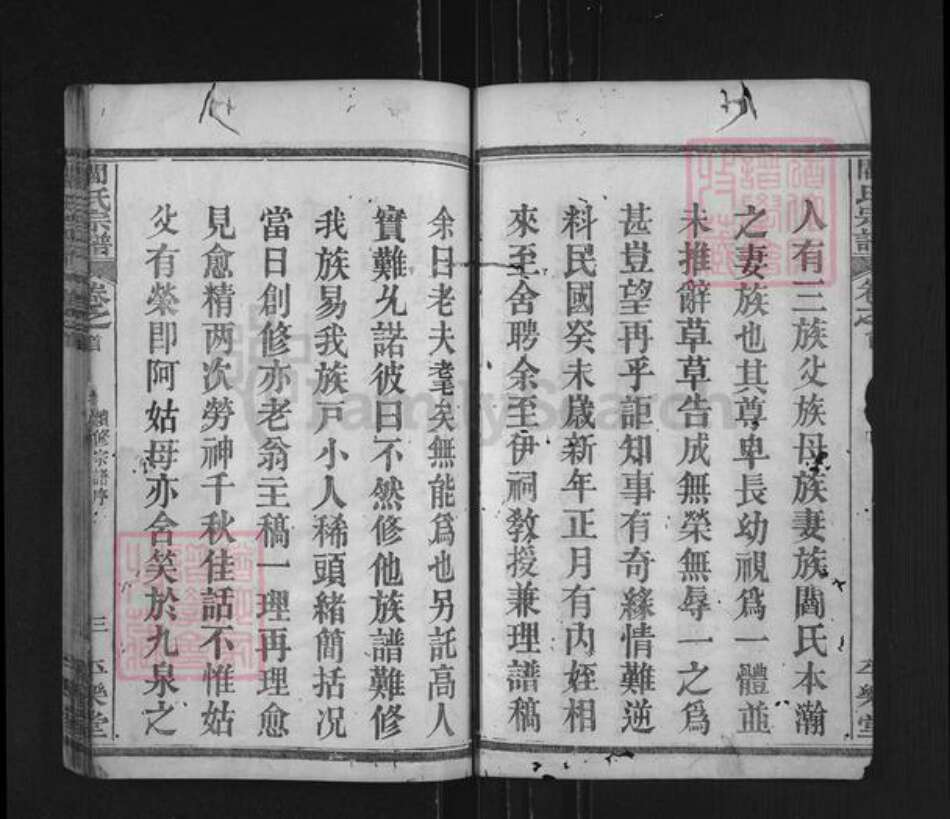 人有三族父族母族妻族閻氏本瀚
之妻族也其尊卑長幼視爲一體並
未推辭草草告成無榮無辱一之爲
甚豈望再乎詎知事有奇緣情難逆
料民國癸未歲新年正月有內姪相
來至舍聘余至伊祠教授兼理譜稿
余曰老夫耄矣無能爲也另託高人
實難允諾彼曰不然修他族譜難修
我族易我族戸小人稀頭緒簡括況
當日創修亦老翁主稿一理再理愈
見愈精两次勞神千秋佳話不惟姑
父有榮即阿姑母亦含笑於九泉之
閻氏宗譜
卷之首
續修宗譜序
三
FamilySearch